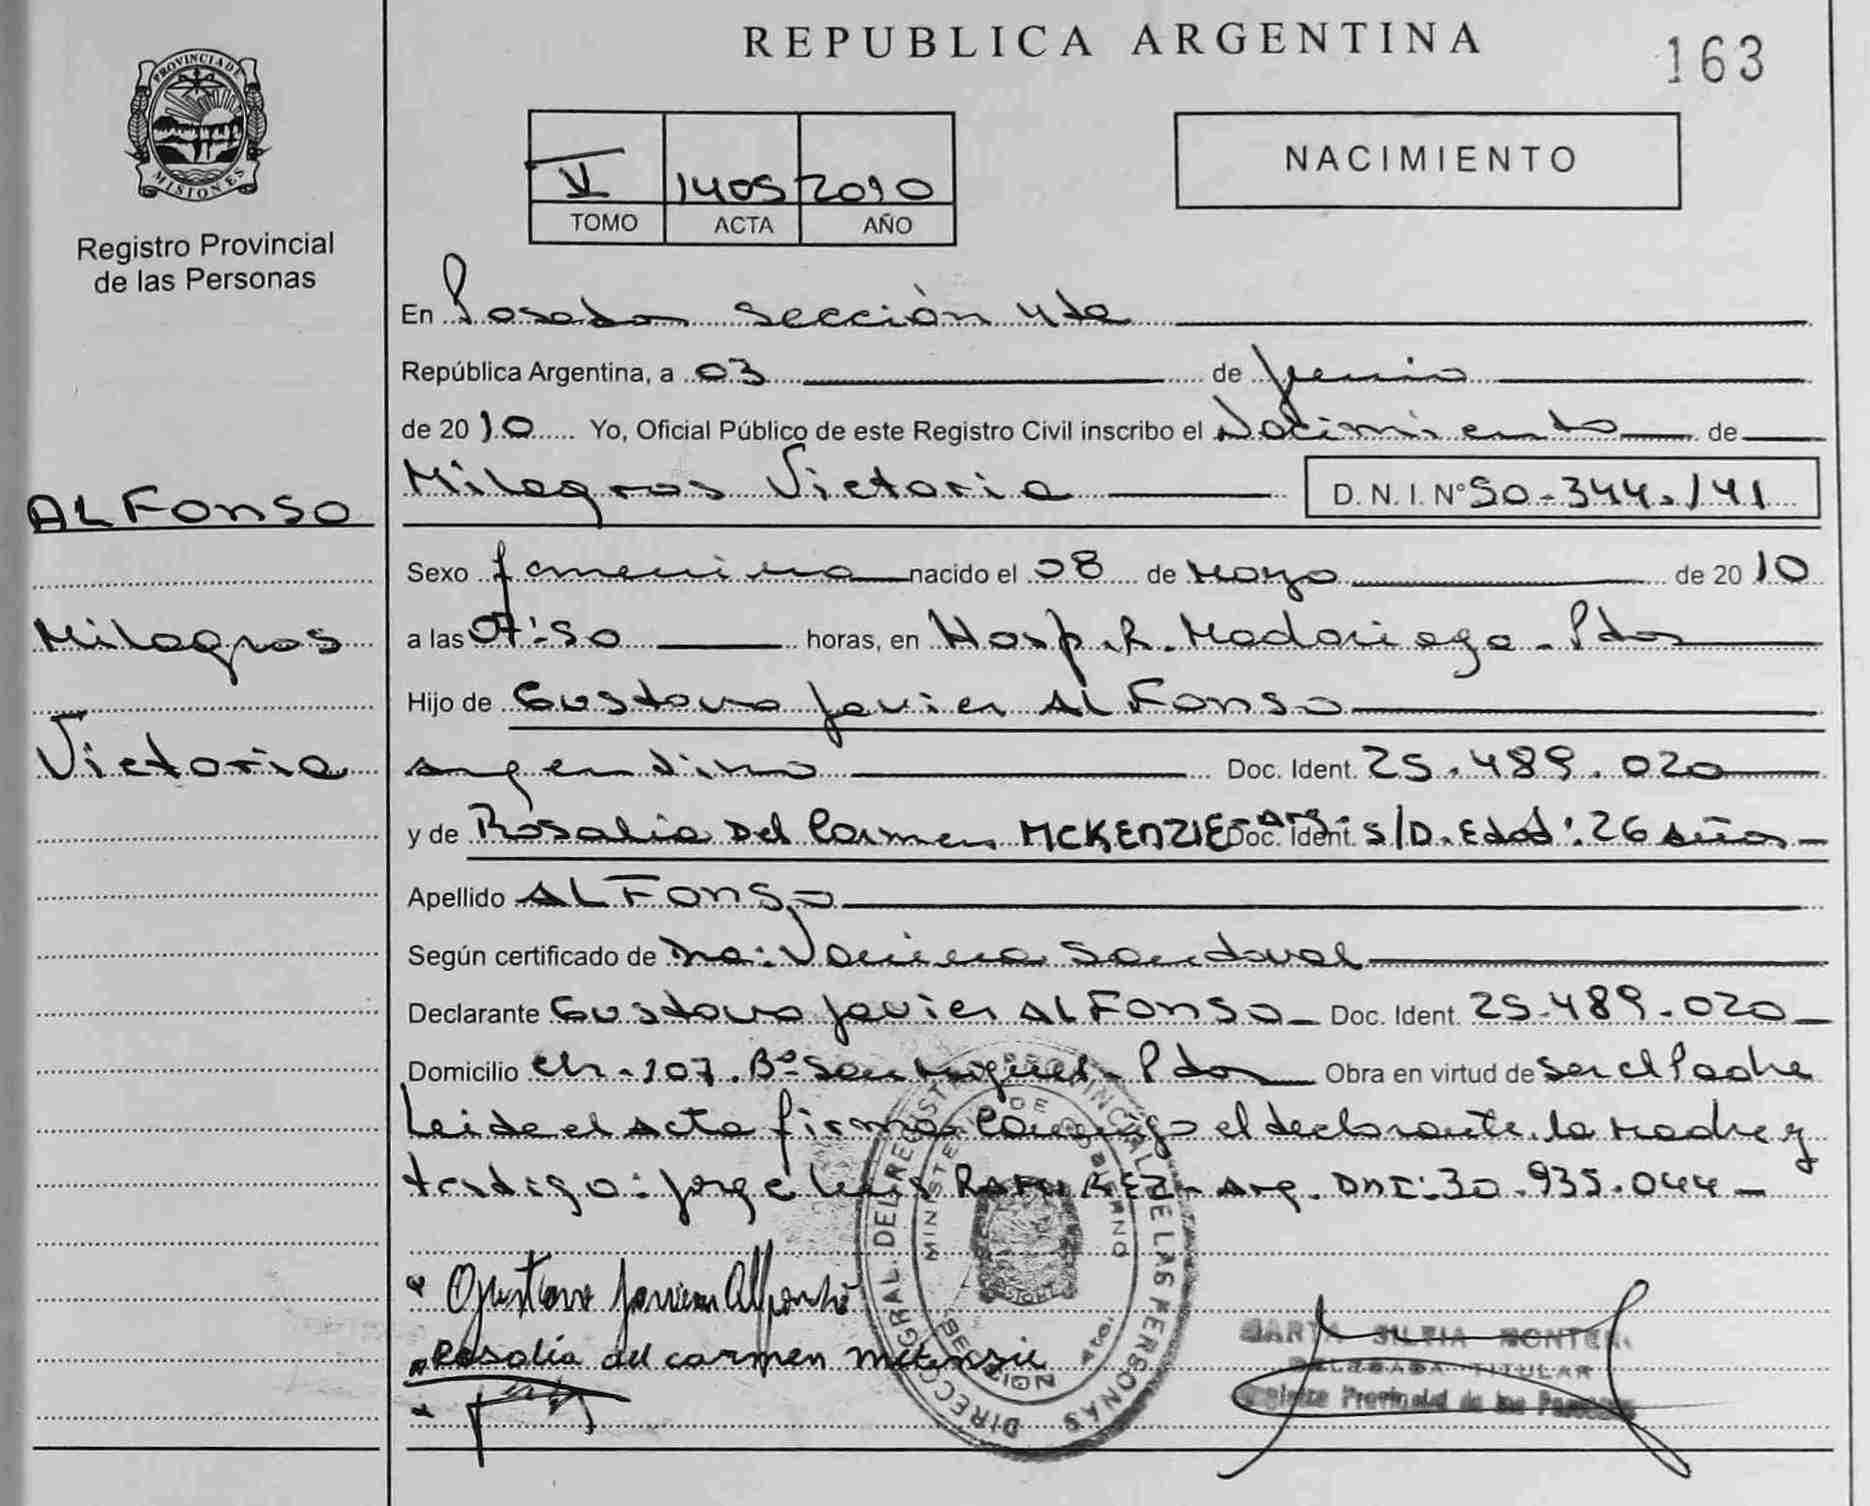 REPUBLICA ARGENTINA
163
PROVINCIA DE MISIONES
Registro Provincial
de las Personas
V 1405 2010
TOMO ACTA AÑO
NACIMIENTO
En Posadas Sección 4ta
República Argentina, a 03 de Junio
de 2010 Yo, Oficial Público de este Registro Civil inscribo el Nacimiento de
Milagros Victoria D. N. I. Nº 50-344.141
ALFonso
Milagros
Victoria
Sexo femenino nacido el 08 de Mayo de 2010
a las 07:50 horas, en Hosp. R. Madariaga - Pdas
Hijo de Gustavo Javier ALFonso
argentino Doc. Ident. 25.489.020
y de Rosalia Del Carmen MCKENZIE-Arg. Doc. Ident. S/D. Edad: 26 años
Apellido ALFonso
Según certificado de Dra: Vanina Sandoval
Declarante Gustavo Javier ALFonso Doc. Ident. 25.489.020
Domicilio Ch-107. Bº San Miguel - Pdas Obra en virtud de ser el Padre
Leida el Acta firman conmigo el declarante, la Madre y
testigo: Jorge Luis RAMIREZ - Arg. DNI: 30.935.044
Gustavo Javier Alfonso
Rosalía del carmen mckenzie
DIRECC. GRAL. DEL REGISTRO PROVINCIAL DE LAS PERSONAS
MINISTERIO DE GOBIERNO
SECCION 4ta.
MARTA SILVIA
DELEGADA TITULAR
Registro Provincial de las Personas